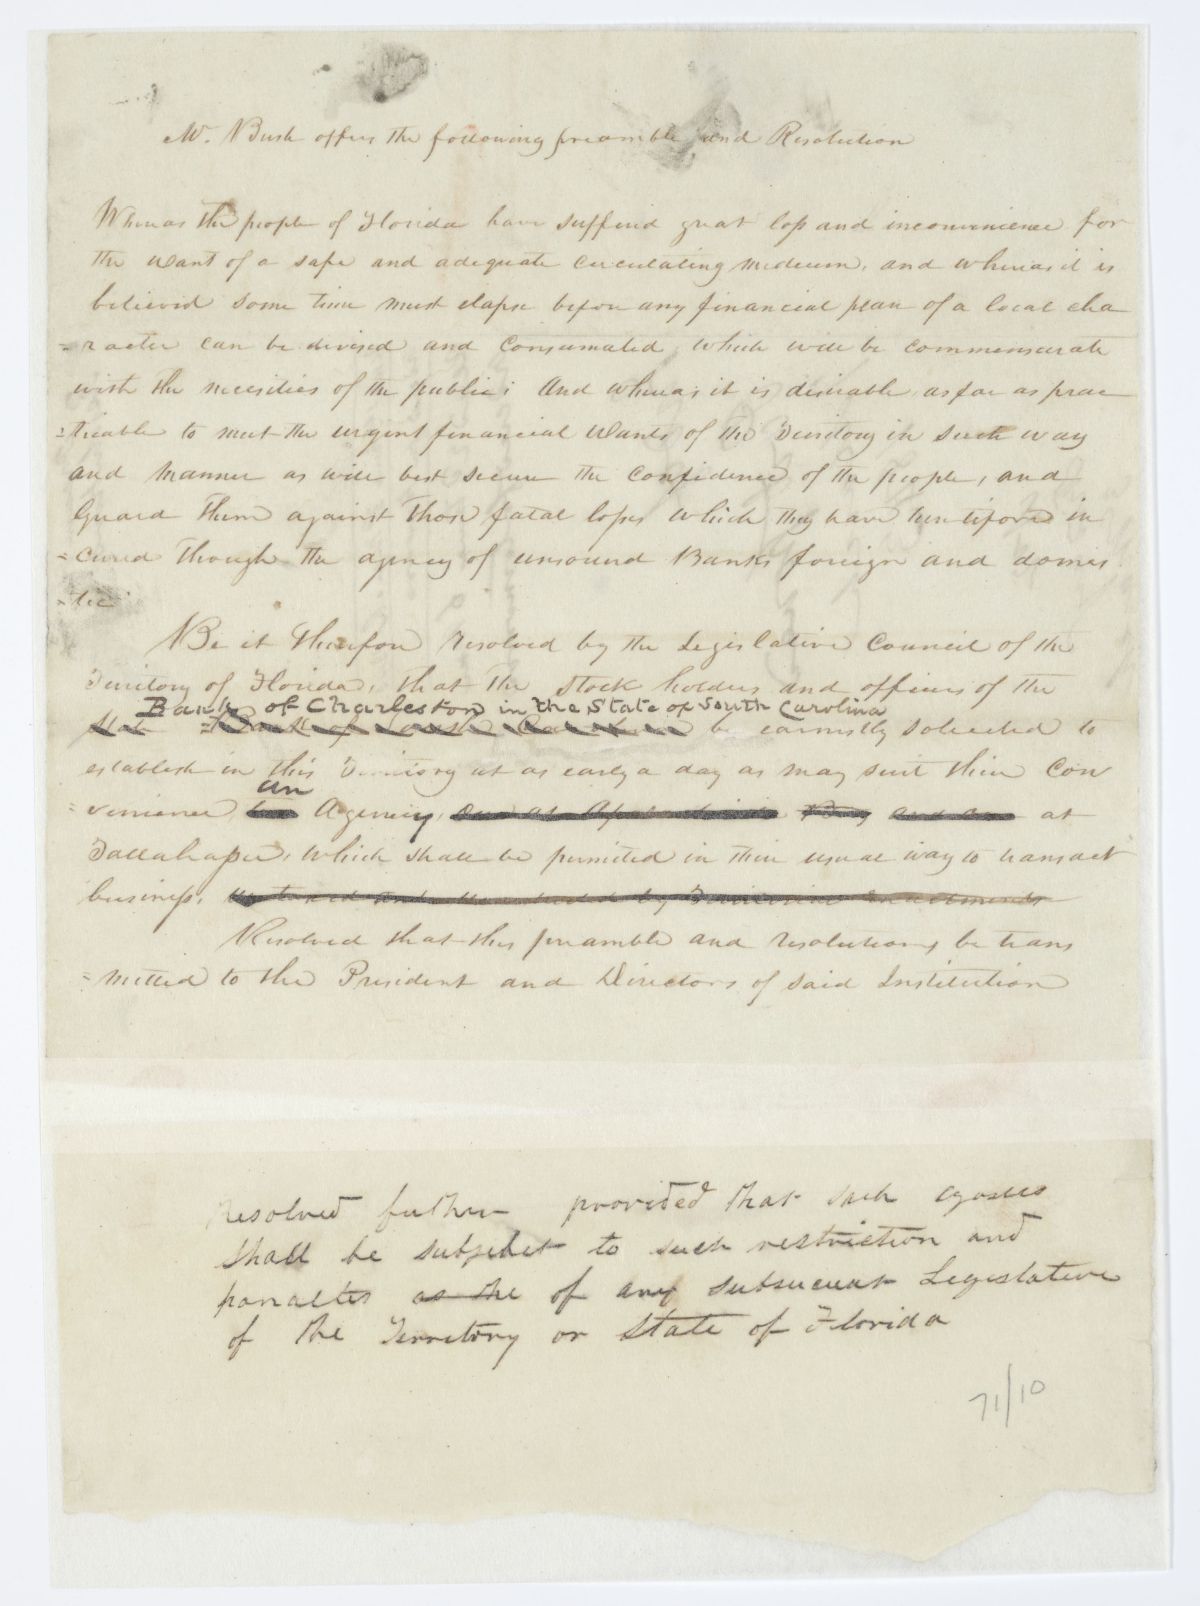 Mr. Bush offers the following preamble and Resolution
Whereas the people of Florida have suffered great loss and inconvenience for
the want of a safe and adequate circulating medium, and whereas it is
believed some time must elapse before any financial plan of a local cha
=racter can be devised and consumated, which will be commensurate
with the necesities of the public; And whereas it is desirable as far as prac
=ticable to meet the urgent financial wants of the Territory in such way
and manner as will best secure the confidence of the people, and
Guard them against those fatal losses which they have heretofore in
=cured through the agency of unsound Banks foreign and domes
=tic
Be it therefore resolved by the Legislative Council of the
Territory of Florida, that the stock holders and officers of the
Bank of Charleston in the State of South Carolina
State Bank of South Carolina be earnestly solicited to
establish in this Territory at as early a day as may suit their con
an
=venience Agency, at
Tallahassee, which shall be permited in their usual way to transact
business, by Territorial Enactments
Resolved that this preamble and resolutions be trans
=mitted to the President and Directors of said Institution
Resolved further provided that such agosies
shall be subjebct to such restriction and
panaltes as the of any subsucuent Legislative
of the Territory or State of Florida
71/10